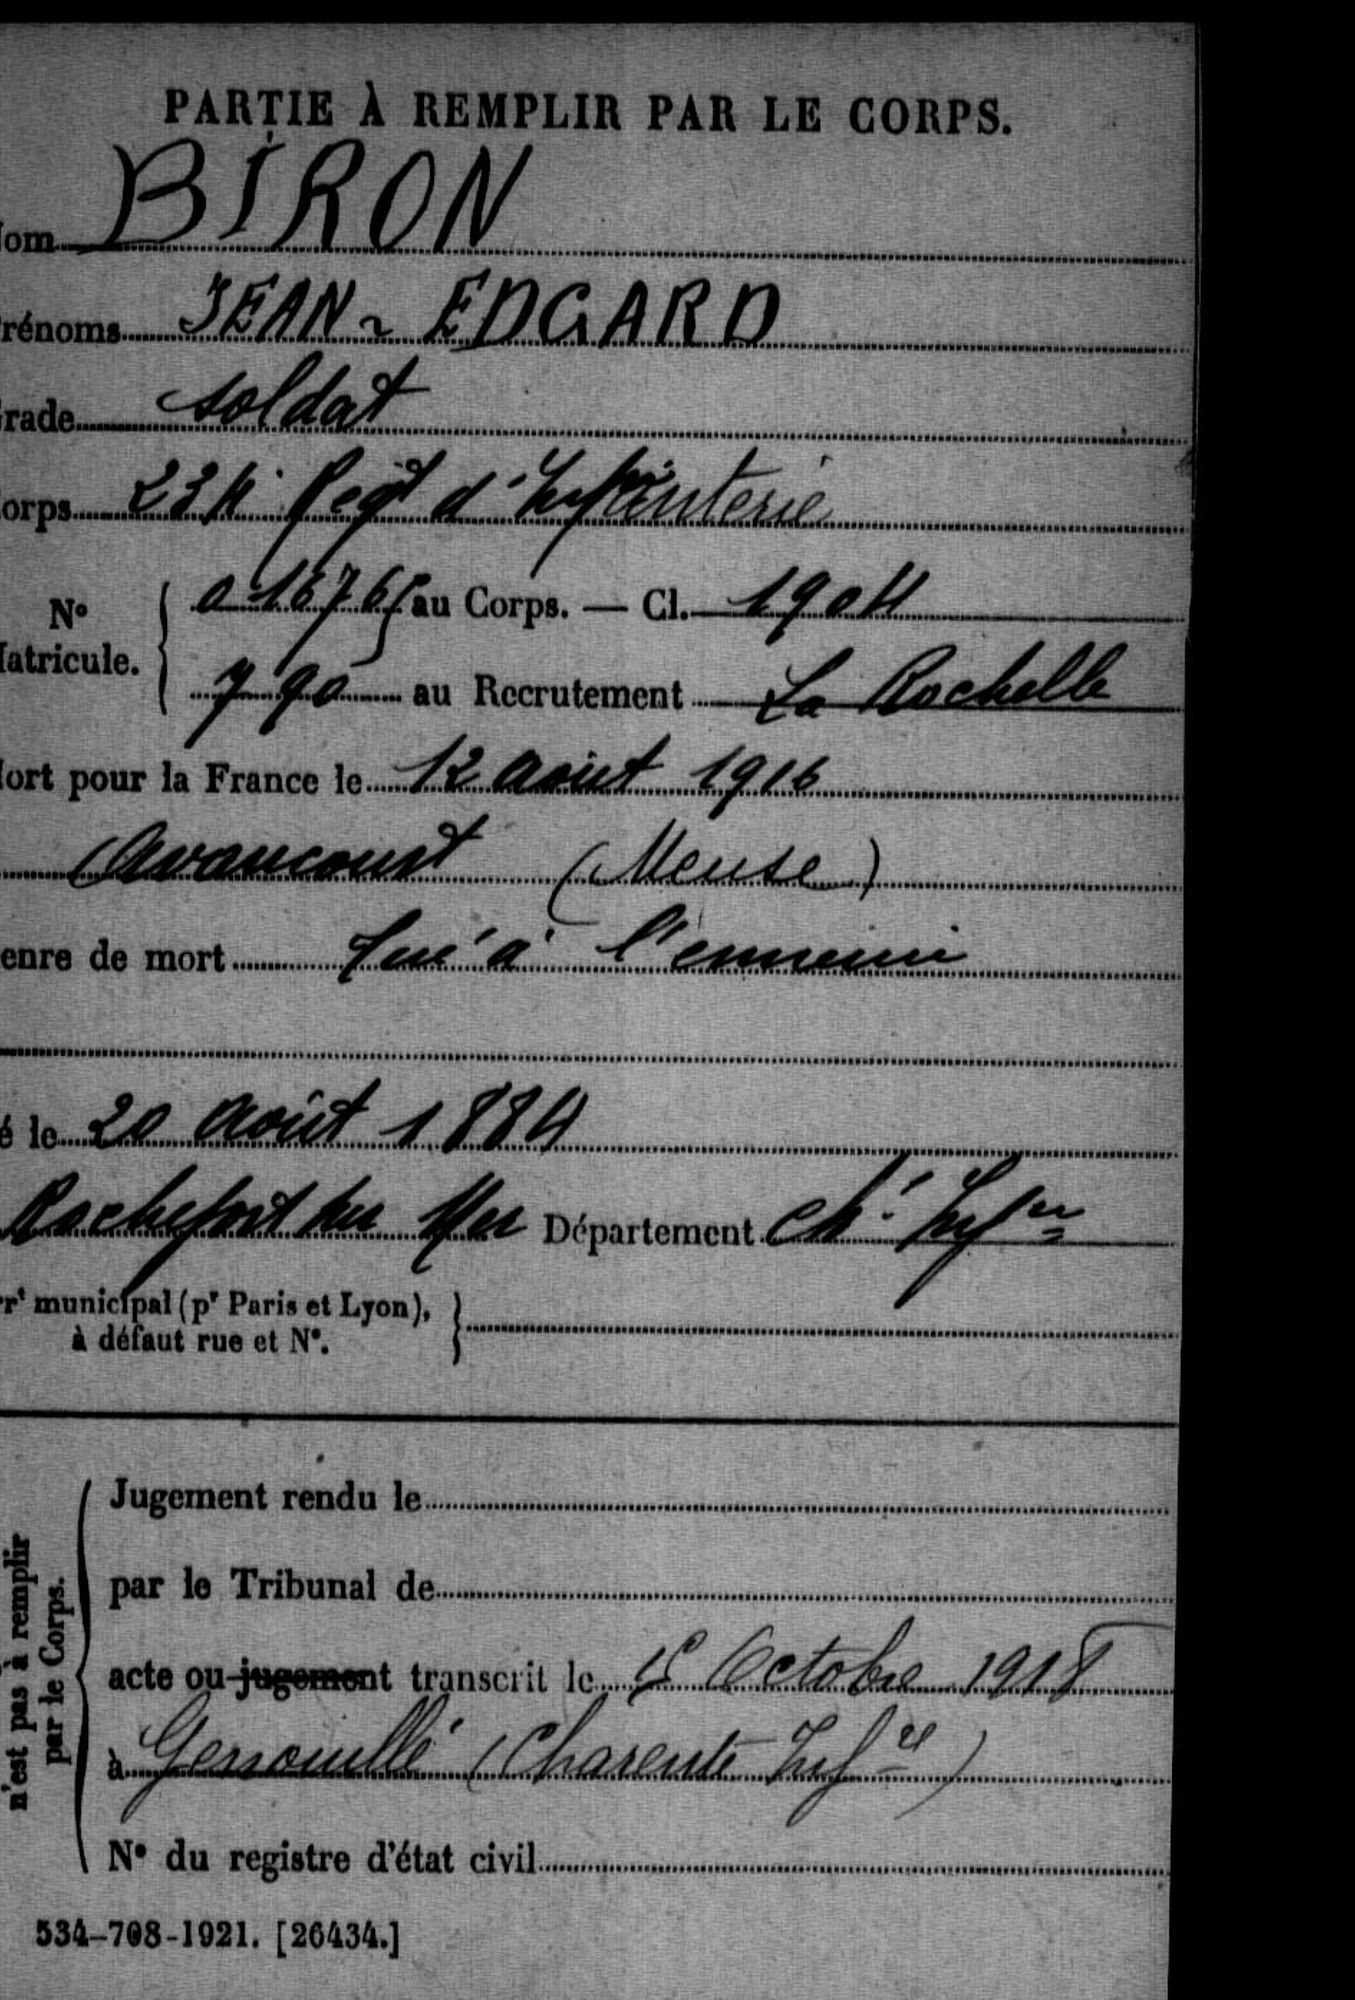 PARTIE À REMPLIR PAR LE CORPS.
om BIRON
rénoms JEAN - EDGARD
rade Soldat
orps 234 Regt d'Infanterie
N° atricule. 016765 au Corps. — Cl. 1904
790 au Recrutement La Rochelle
ort pour la France le 12 août 1916
Avaucourt (Meuse)
enre de mort Tué à l'ennemi
é le 20 août 1884
Rochefort sur Mer Département Ch. Infre
rt municipal (pr Paris et Lyon),
à défaut rue et N°.
n'est pas à remplir
par le Corps.
Jugement rendu le
par le Tribunal de
acte ou jugement transcrit le Octobre 1918
à Genouillé (Charente Infre)
N° du registre d'état civil
534-708-1921. [26434.]